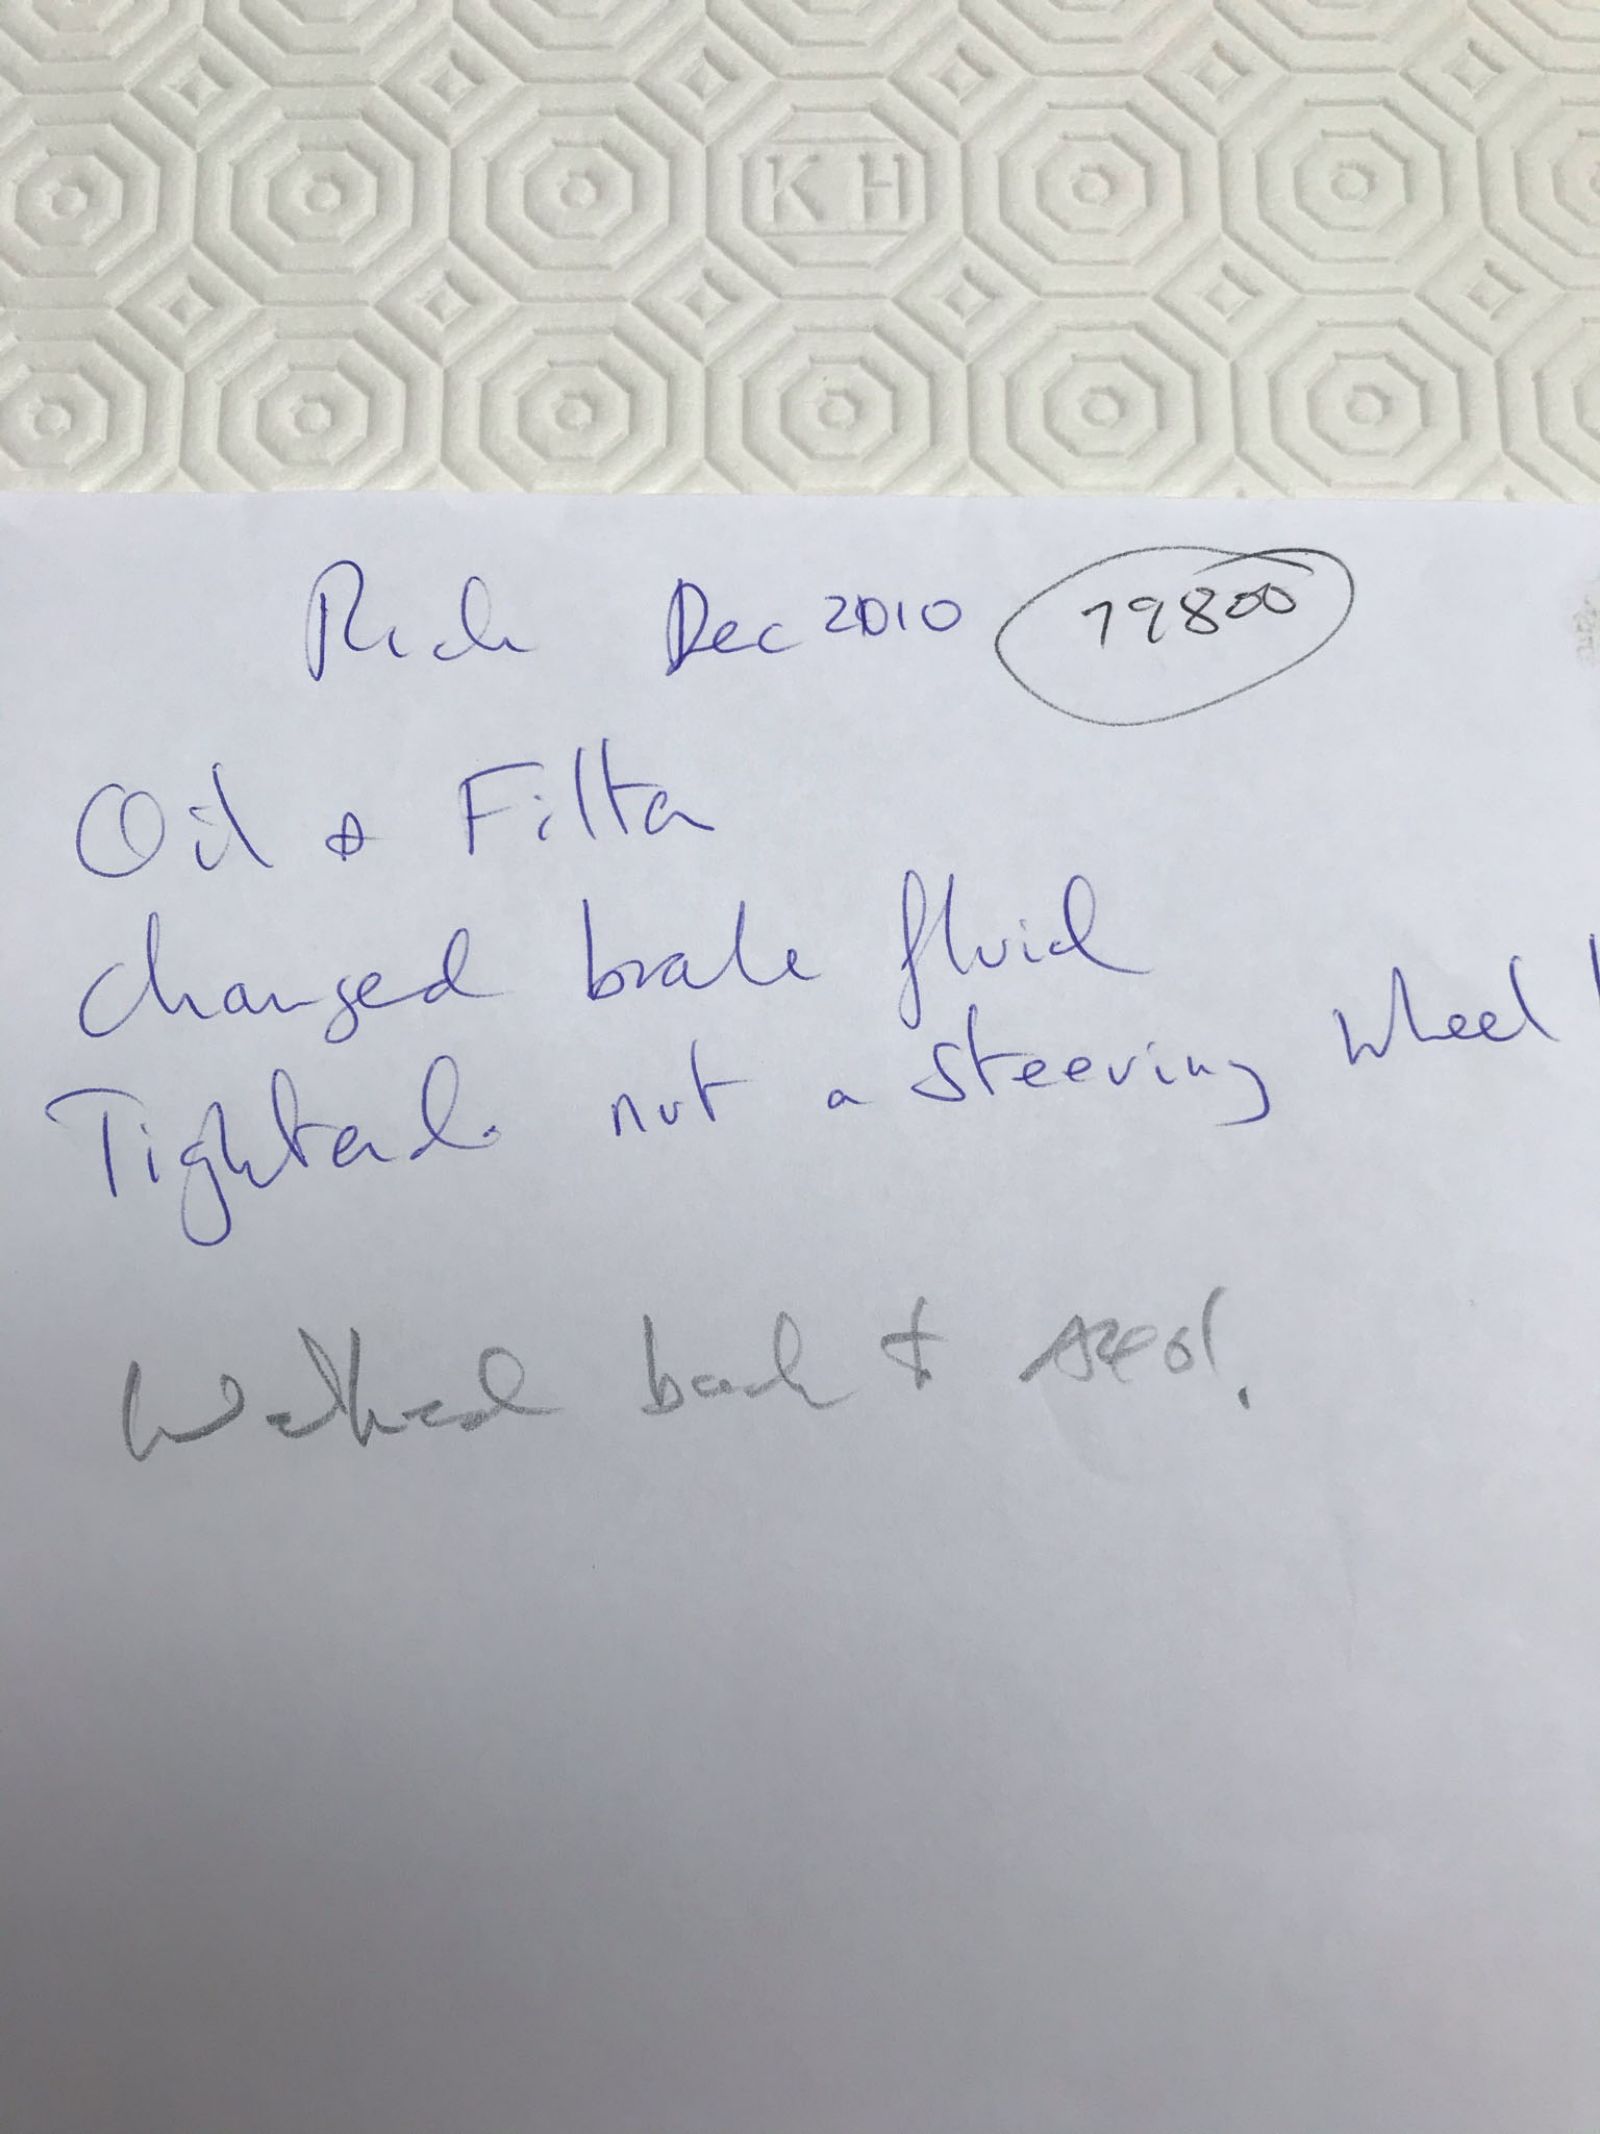 KH
Rich Dec 2010 79800
Oil & Filter
changed brake fluid
Tightened nut a steering wheel
back &